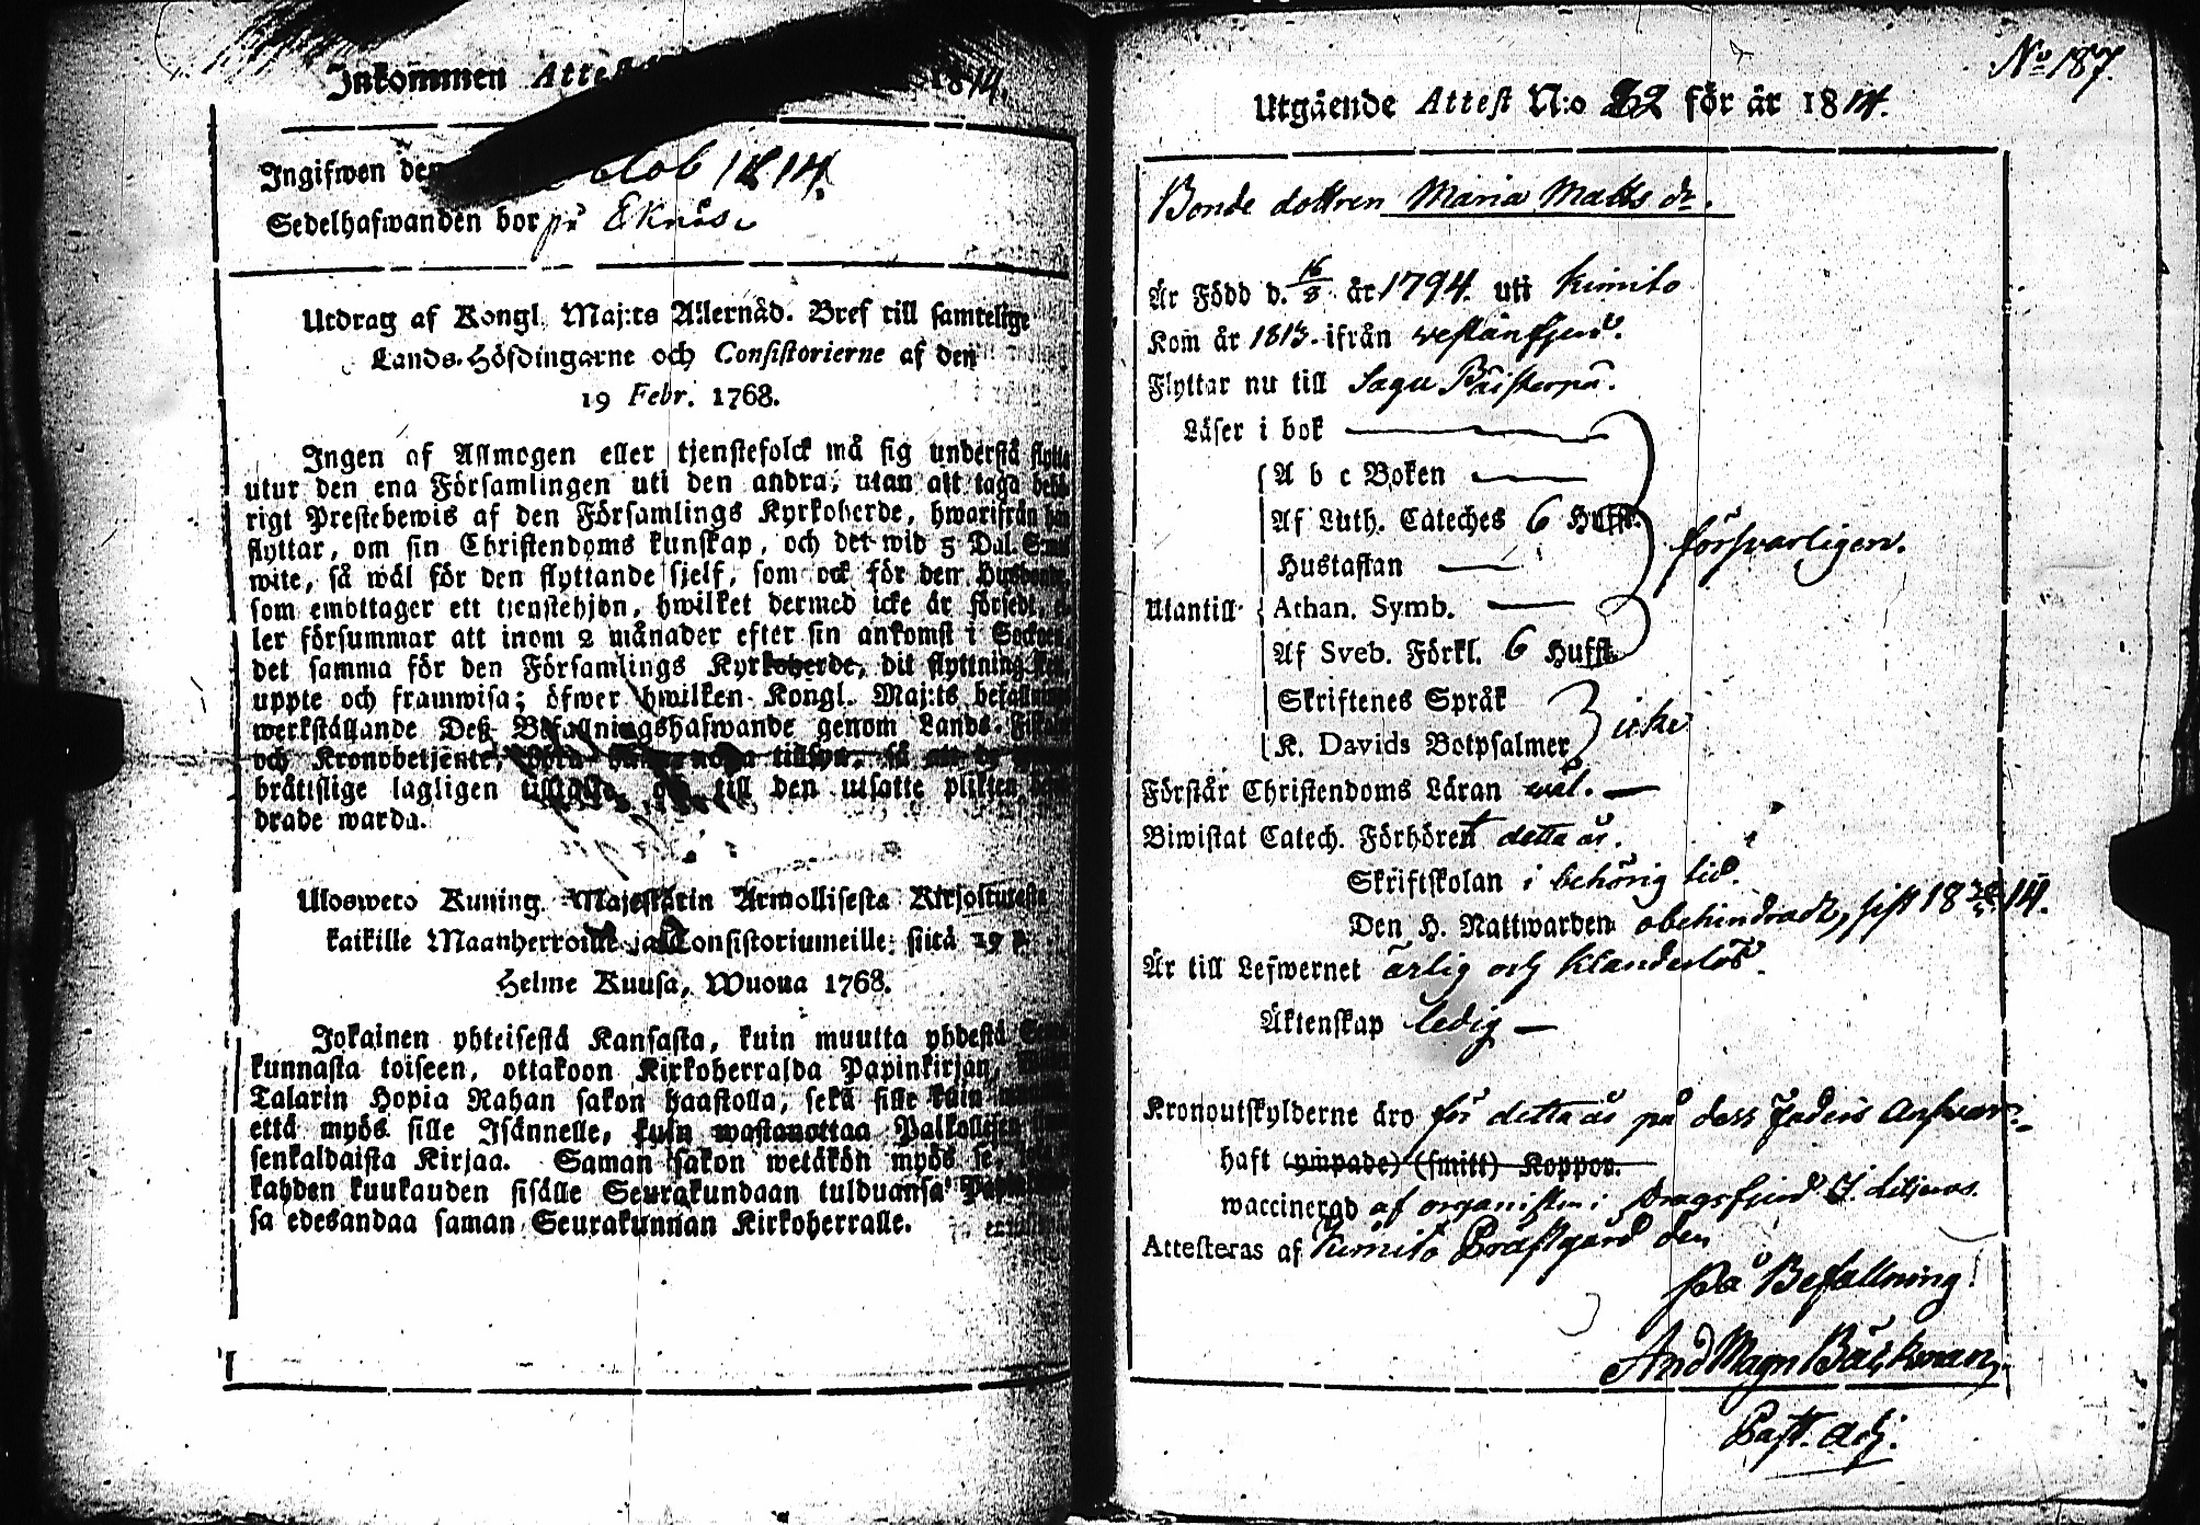 Inkommen Attest 1814.
Ingifwen den Octob 1814.
Sedelhafwanden bor på Eknäs
Utdrag af Kongl. Maj:ts Allernåd. Bref till samtelige
Lands-Höfdingarne och Consistorierne af den
19 Febr. 1768.
Ingen af Allmogen eller tjenstefolck må sig understå flytta
utur den ena Församlingen uti den andra, utan att taga behö-
rigt Prestebewis af den Församlings Kyrkoherde, hwarifrån han
flyttar, om sin Christendoms kunskap, och det wid 5 Dal. S:mt
wite, så wäl för den flyttande sjelf, som ock för den Husbonde,
som emottager ett tjenstehjon, hwilket dermed icke är försedt, el-
ler försummar att inom 2 månader efter sin ankomst i Socknen,
det samma för den Församlings Kyrkoherde, dit flyttning sker,
uppte och framwisa; öfwer hwilken Kongl. Maj:ts befallning
werkställande Deß Befallningshafwande genom Lands-Fiskaler
och Kronobetjente, böra hafwa noga tillsyn, så att de
brätislige lagligen tilltalte, och till den utsatte plikten
drade warda.
Ulosweto Kuning. Majestetin Armollisesta Kirjoituxesta
kaikille Maanherroille ja Consistoriumeille, siitä 19 p.
Helme Kuusa, Wuona 1768.
Jokainen yhteisestä Kansasta, kuin muutta yhdestä Seura-
kunnasta toiseen, ottakoon Kirkoherralda Papinkirjan,
Talarin Hopia Rahan sakon haastolla, sekä sille kuin
että myös sille Isännelle, kuin wastanottaa Palkollisen
senkaldaista Kirjaa. Saman sakon wetäkön myös se,
kahden kuukauden sisälle Seurakundaan tulduansa
sa edesandaa saman Seurakunnan Kirkoherralle.
No 187.
Utgående Attest N:o 22 för år 1814.
Bonde dottren Maria Matts dr.
Är Född d. 16/8 år 1794. uti Kimito
Kom år 1813. ifrån westanfjerd.
Flyttar nu till Sagu Båisterpå.
Läser i bok
A b c Boken
Af Luth. Cateches 6 Hufst.
försvarligen.
Hustaflan
Utantill Athan. Symb.
Af Sveb. Förkl. 6 Hufst.
Skriftenes Språk
icke
K. Davids Botpsalmer
Förstår Christendoms Läran wäl.
Biwistat Catech. Förhöret detta år.
Skriftskolan i behörig tid.
Den H. Nattwarden obehindradt, sist 18 14.
Är till Lefwernet ärlig och klanderlös.
Äktenskap ledig
Kronoutskylderne äro för detta år på dess Faders answar.
haft (ympade) (smitt) Koppor.
waccinerad af organisten i Dragsfjerd J. Liljeros.
Attesteras af Kimito Prästgård den
På Befallning.
And Magn Bäckman
Past. Adj.